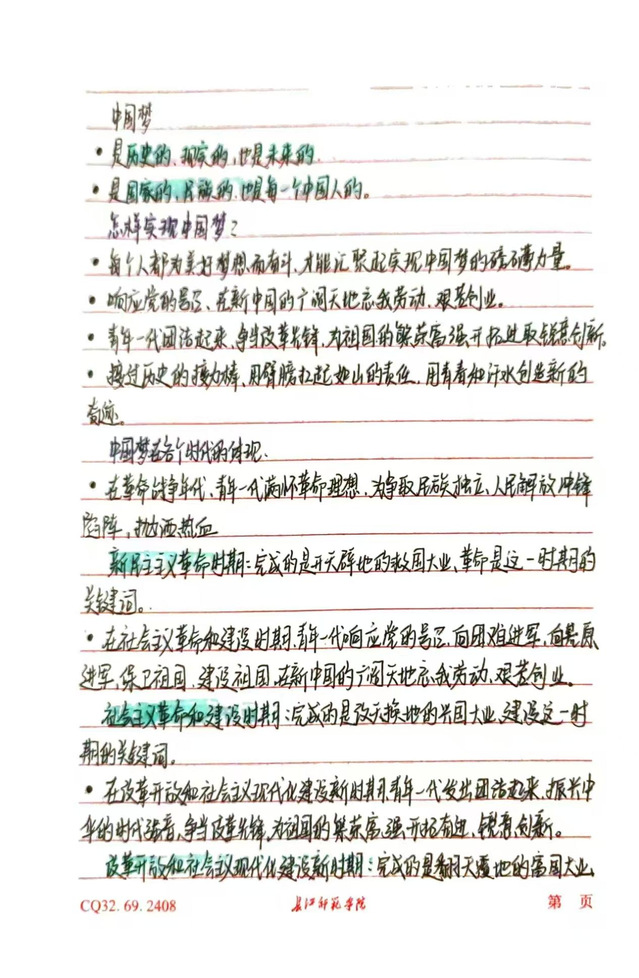 中国梦
• 是历史的、现实的,也是未来的.
• 是国家的、民族的,也是每一个中国人的。
怎样实现中国梦?
• 每个人都为美好梦想而奋斗,才能汇聚起实现中国梦的磅礴力量。
• 响应党的号召、在新中国的广阔天地忘我劳动、艰苦创业。
• 青年一代团结起来、争当改革先锋,为祖国的繁荣富强开拓进取锐意创新。
• 接过历史的接力棒、用臂膀扛起如山的责任,用青春和汗水创造新的
奇迹。
中国梦在各个时代的体现.
• 在革命战争年代、青年一代满怀革命理想、为争取民族独立、人民解放冲锋
陷阵,抛洒热血
新民主主义革命时期:完成的是开天辟地的救国大业、革命是这一时期的
关键词。
• 在社会主义革命和建设时期,青年一代响应党的号召、向困难进军、向荒原
进军、保卫祖国、建设祖国、在新中国的广阔天地忘我劳动、艰苦创业。
社会主义革命和建设时期:完成的是改天换地的兴国大业、建设这一时
期的关键词。
• 在改革开放和社会主义现代化建设新时期,青年一代发出团结起来、振兴中
华的时代强音,争当改革先锋,为祖国的繁荣富强开拓奋进、锐意创新。
改革开放和社会主义现代化建设新时期:完成的是翻天覆地的富国大业、
CQ32.69.2408 长江师范学院 第 页